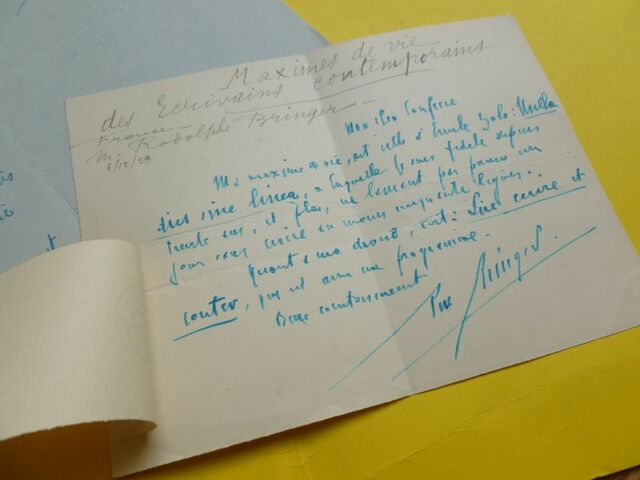 Maximes de vie
des Ecrivains contemporains
France
M. Rodolphe Bringer
6/12/23
Mon cher Confrère
Ma maxime de vie, est celle d'Emile Zola: Nulla
dies sine linea, à laquelle je suis fidèle depuis
trente ans, et plus, ne laissant pas passer un
jour sans écrire au moins lignes.
Quant à ma devise, c'est: Lire écrire et
conter, qui est aussi un programme.
Bien cordialement
Bringer